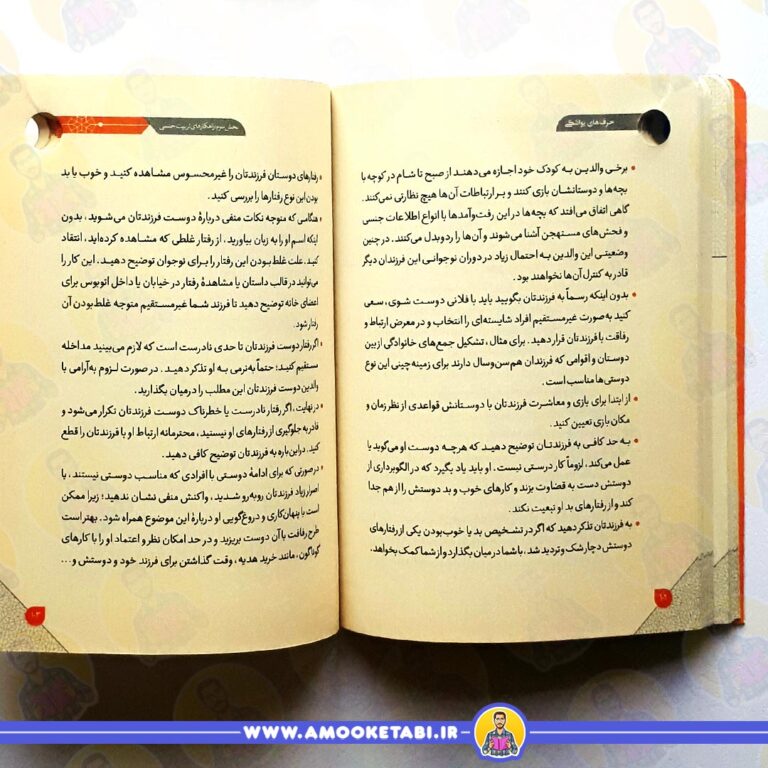 حرف‌های یواشکی
• برخی والدین به کودک خود اجازه می‌دهند از صبح تا شام در کوچه با
بچه‌ها و دوستانشان بازی کنند و بر ارتباطات آن‌ها هیچ نظارتی نمی‌کنند.
گاهی اتفاق می‌افتد که بچه‌ها در این رفت‌وآمدها با انواع اطلاعات جنسی
و فحش‌های مستهجن آشنا می‌شوند و آن‌ها را ردوبدل می‌کنند. در چنین
وضعیتی این والدین به احتمال زیاد در دوران نوجوانی این فرزندان دیگر
قادر به کنترل آن‌ها نخواهند بود.
• بدون اینکه رسماً به فرزندتان بگویید باید با فلانی دوست شوی، سعی
کنید به‌صورت غیرمستقیم افراد شایسته‌ای را انتخاب و در معرض ارتباط و
رفاقت با فرزندتان قرار دهید. برای مثال، تشکیل جمع‌های خانوادگی از بین
دوستان و اقوامی که فرزندان هم‌سن‌وسال دارند برای زمینه‌چینی این نوع
دوستی‌ها مناسب است.
• از ابتدا برای بازی و معاشرت فرزندتان با دوستانش قواعدی از نظر زمان و
مکان بازی تعیین کنید.
• به حد کافی به فرزندتان توضیح دهید که هرچه دوست او می‌گوید یا
عمل می‌کند، لزوماً کار درستی نیست. او باید یاد بگیرد که در الگوبرداری از
دوستش دست به قضاوت بزند و کارهای خوب و بد دوستش را از هم جدا
کند و از رفتارهای بد او تبعیت نکند.
• به فرزندتان تذکر دهید که اگر در تشخیص بد یا خوب‌بودن یکی از رفتارهای
دوستش دچار شک و تردید شد، با شما در میان بگذارد و از شما کمک بخواهد.
۱۰۲
بخش سوم: راهکارهای تربیت جنسی
• رفتارهای دوستان فرزندتان را غیرمحسوس مشاهده کنید و خوب یا بد
بودن این نوع رفتارها را بررسی کنید.
• هنگامی که متوجه نکات منفی دربارهٔ دوست فرزندتان می‌شوید، بدون
اینکه اسم او را به زبان بیاورید، از رفتار غلطی که مشاهده کرده‌اید، انتقاد
کنید. علت غلط بودن این رفتار را برای نوجوان توضیح دهید. این کار را
می‌توانید در قالب داستان یا مشاهدهٔ رفتار در خیابان یا داخل اتوبوس برای
اعضای خانه توضیح دهید تا فرزند شما غیرمستقیم متوجه غلط‌بودن آن
رفتار شود.
• اگر رفتار دوست فرزندتان تا حدی نادرست است که لازم می‌بینید مداخله
مستقیم کنید؛ حتماً به‌نرمی به او تذکر دهید. در صورت لزوم به‌آرامی با
والدین دوست فرزندتان این مطلب را درمیان بگذارید.
• در نهایت، اگر رفتار نادرست یا خطرناک دوست فرزندتان تکرار می‌شود و
قادر به جلوگیری از رفتارهای او نیستید، محترمانه ارتباط او با فرزندتان را قطع
کنید. در این‌باره به فرزندتان توضیح کافی دهید.
• در صورتی که برای ادامهٔ دوستی با افرادی که مناسب دوستی نیستند، با
اصرار زیاد فرزندتان روبه‌رو شدید، واکنش منفی نشان ندهید؛ زیرا ممکن
است با پنهان‌کاری و دروغ‌گویی او دربارهٔ این موضوع همراه شود. بهتر است
طرح رفاقت با آن دوست بریزید و در حد امکان نظر و اعتماد او را با کارهای
گوناگون، مانند خرید هدیه، وقت گذاشتن برای فرزند خود و دوستش و...
۱۰۳
WWW.AMOOKETABI.IR